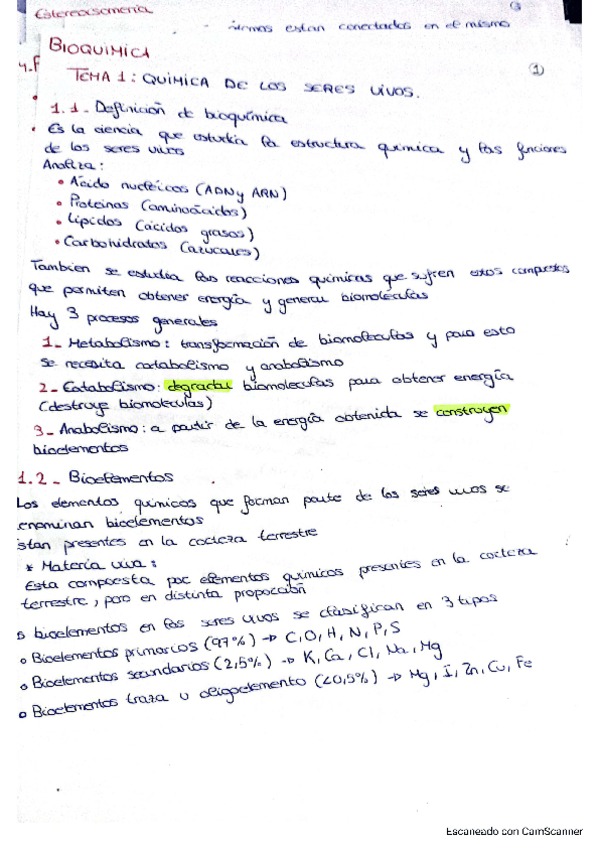 Estereoisomería
átomos estan conectados en el mismo
BIOQUIMICA
4.F
TEMA 1: QUIMICA DE LOS SERES VIVOS.
1
1.1- Definición de bioquímica
• Es la ciencia que estudia la estructura quimica y las funciones
de los seres vivos
Analiza:
• Ácido nucléicos (ADN y ARN)
• Proteinas (aminoácidos)
• Lipidos (ácidos grasos)
• Carbohidratos (azucares)
Tambien se estudia las reacciones químicas que sufren estos compuestos
que permiten obtener energía y generar biomoléculas
Hay 3 procesos generales
1- Metabolismo: transformación de biomoléculas y para esto
se necesita catabolismo y anabolismo
2- Catabolismo: degradar biomoleculas para obtener energía
(destruye biomoleculas)
3- Anabolismo: a partir de la energía obtenida se construyen
bioelementos
1.2- Bioelementos
Los elementos químicos que forman parte de los seres vivos se
enominan bioelementos
stan presentes en la corteza terrestre
* Materia viva:
Esta compuesta por elementos químicos presentes en la corteza
terrestre, pero en distinta proporción
s bioelementos en los seres vivos se clasifican en 3 tipos
o Bioelementos primarios (97%) → C, O, H, N, P, S
o Bioelementos secundarios (2,5%) → K, Ca, Cl, Na, Mg
o Bioelementos traza u oligoelemento (<0,5%) → Mg, I, Zn, Cu, Fe
Escaneado con CamScanner